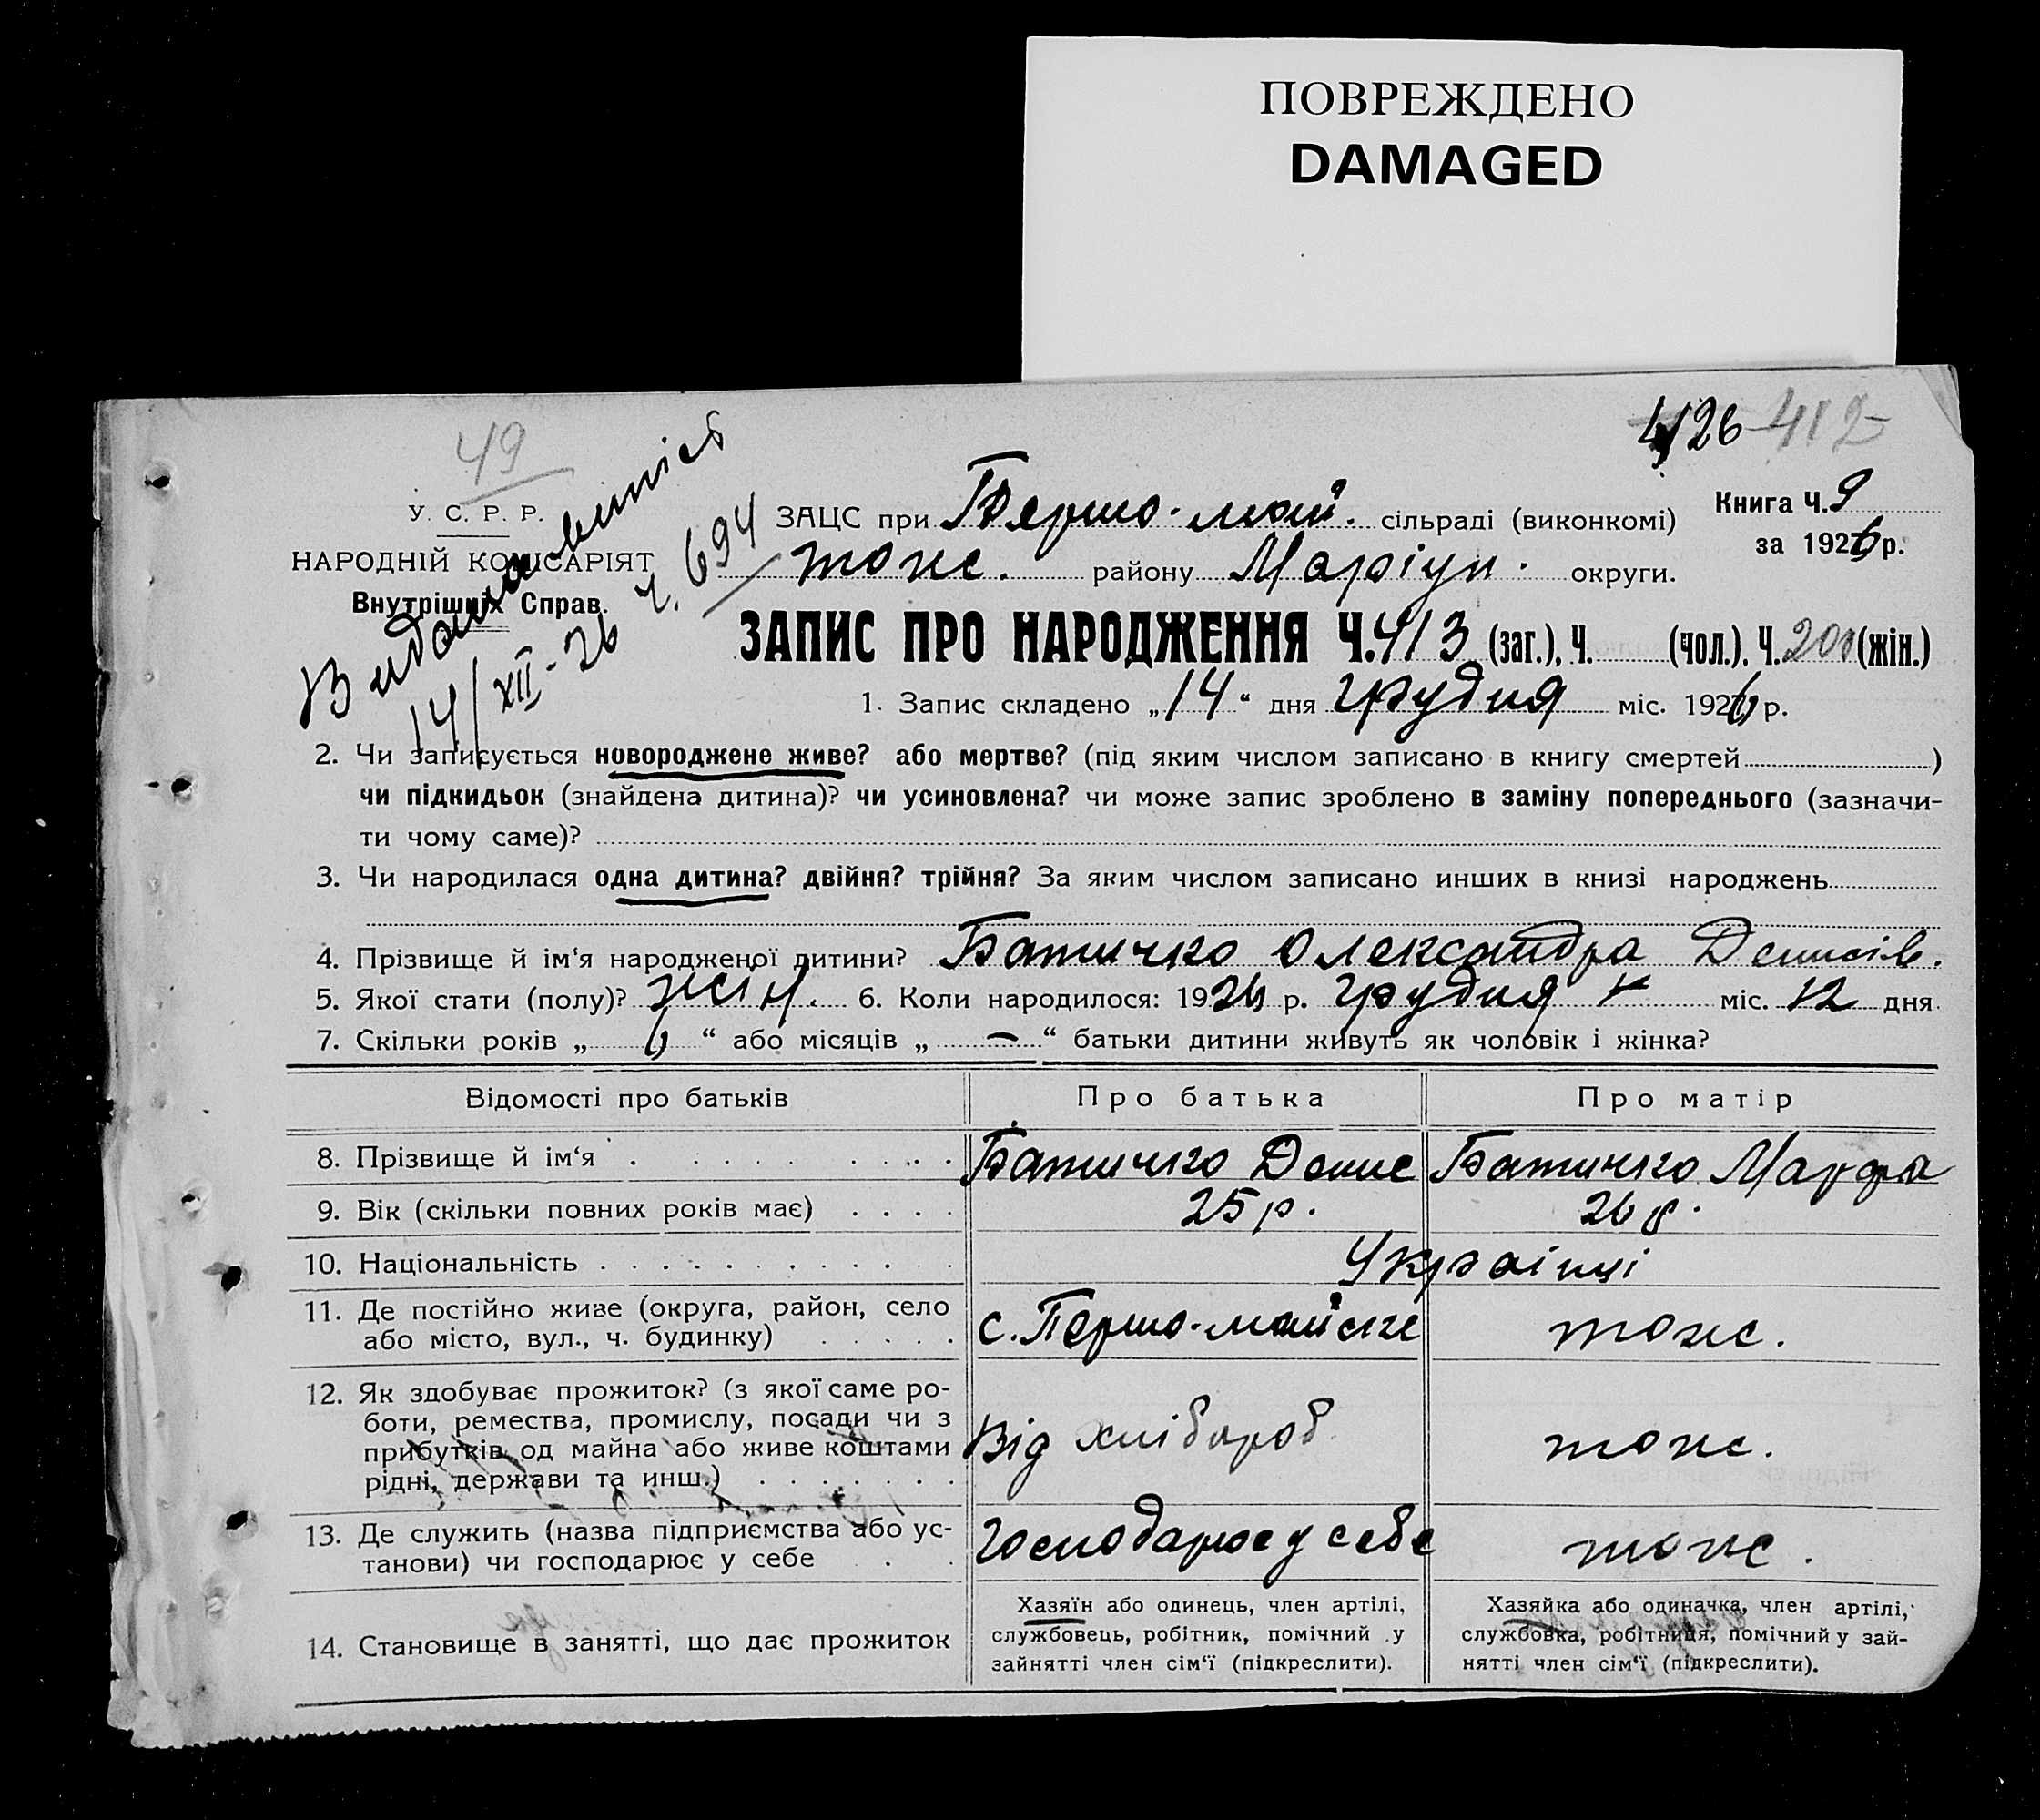 ПОВРЕЖДЕНО
DAMAGED
4126 412
49
У. С. Р. Р.
НАРОДНІЙ КОМІСАРІЯТ
Внутрішніх Справ.
14/XII-26 ч. 694
ЗАЦС при Першо-май. сільраді (виконкомі)
Книга Ч. 9
за 1926 р.
тоже. району Маріуп. округи.
ЗАПИС ПРО НАРОДЖЕННЯ Ч. 413 (заг.), Ч. (чол.). Ч. 200 (жін.)
1. Запис складено „14“ дня грудня міс. 1926 р.
2. Чи записується новороджене живе? або мертве? (під яким числом записано в книгу смертей )
чи підкидьок (знайдена дитина)? чи усиновлена? чи може запис зроблено в заміну попереднього (зазначи-
ти чому саме)?
3. Чи народилася одна дитина? двійня? трійня? За яким числом записано инших в книзі народжень
4. Прізвище й ім‘я народженої дитини? Батичко Олександра Денисів.
5. Якої стати (полу)? жін. 6. Коли народилося: 1926 р. грудня міс. 12 дня
7. Скільки років „ 6 “ або місяців „ — “ батьки дитини живуть як чоловік і жінка?
Відомості про батьків Про батька Про матір
8. Прізвище й ім‘я Батичко Денис Батичко Марфа
9. Вік (скільки повних років має) 25 р. 26 р.
10. Національність Українці
11. Де постійно живе (округа, район, село
або місто, вул., ч. будинку) с. Першо-майське тоже.
12. Як здобуває прожиток? (з якої саме ро-
боти, ремества, промислу, посади чи з
прибутків од майна або живе коштами
рідні, держави та инш.) Від хлібороб тоже.
13. Де служить (назва підприємства або ус-
танови) чи господарює у себе Господарює у себе тоже.
14. Становище в занятті, що дає прожиток
Хазяїн або одинець, член артілі,
службовець, робітник, помічний у
зайнятті член сім‘ї (підкреслити).
Хазяйка або одиначка, член артілі,
службовка, робітниця, помічний у зай-
нятті член сім‘ї (підкреслити).